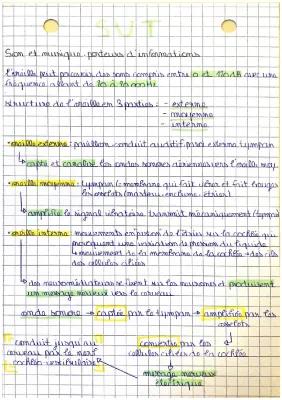 SVT
Son et musique, porteurs d'informations
L'oreille peut percevoir des sons compris entre 0 et 120 dB avec une
fréquence allant de 20 à 20 000 Hz
Structure de l'oreille en 3 parties : - externe
- moyenne
- interne
• oreille externe : pavillon conduit auditif paroi externe tympan
↳ capte et canalise les ondes sonores aériennes vers l'oreille moy.
• oreille moyenne : tympan (membrane qui fait vibrer et fait bouger
les osselets (marteau, enclume, étrier)
↳ amplifie le signal vibratoire transmit mécaniquement (tympan)
• oreille interne : mouvements en piston de l'étrier sur la cochlée qui
provoquent une variation de pression du liquide
→ mouvement de la membrane de la cochlée → des cils
des cellules ciliées
↳ des neuromédiateurs se fixent sur les neurones et produisent
un message nerveux vers le cerveau
onde sonore → captée par le tympan → amplifiée par les
osselets
conduit jusqu'au
cerveau par le nerf
cochléo vestibulaire
convertie par les
cellules ciliées de la cochlée
message nerveux
électrique